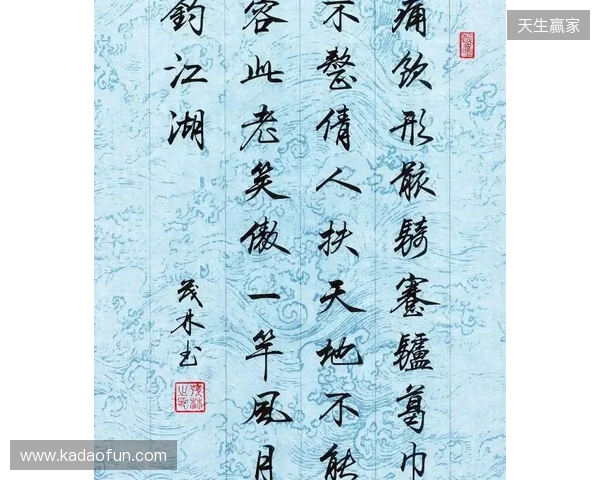 痛饮形骸騎蹇驢葛巾
不整倩人扶天地不能
容此老笑傲一竿風月
釣江湖
茂林书
天生赢家
www.kadaofun.com